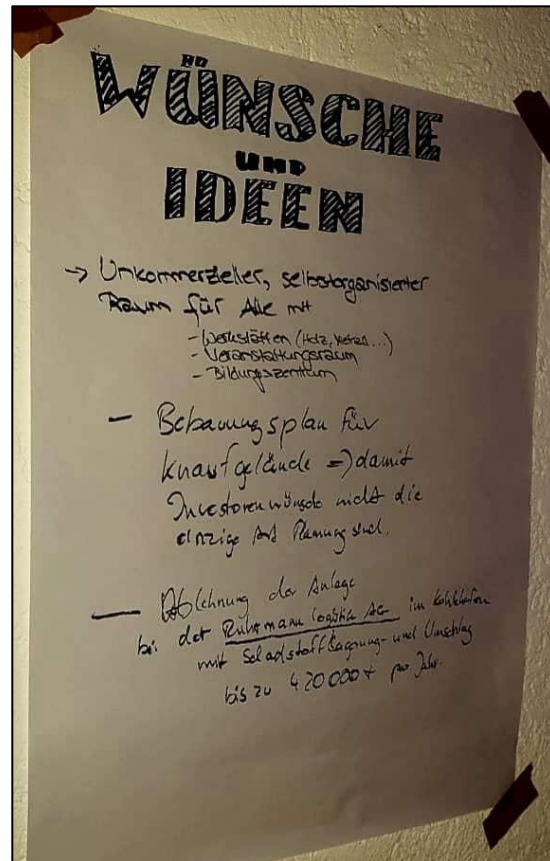 WÜNSCHE
UND
IDEEN
-> Unkommerzieller, selbstorganisierter
Raum für Alle mit
- Werkstätten (Holz, Metall...)
- Veranstaltungsraum
- Bildungszentrum
- Bebauungsplan für
Knaufgelände => damit
Investorenwünsche nicht die
einzige Art Planung sind.
- Ablehnung der Anlage
bei der Ruhrmann Logistik AG im Kohlehafen
mit Schadstofflagerung- und Umschlag
bis zu 420 000 t pro Jahr.